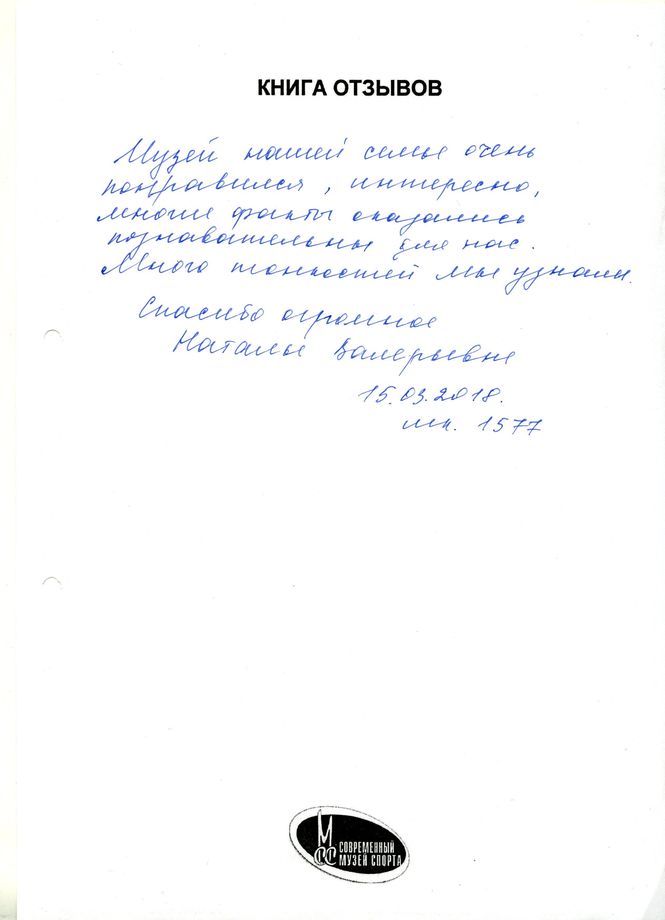 КНИГА ОТЗЫВОВ
Музей нашей семье очень
понравился, интересно,
многие факты оказались
познавательны для нас.
Много тонкостей мы узнали.
Спасибо огромное
Наталье Валерьевне
15.03.2018.
шк. 1577
МСС СОВРЕМЕННЫЙ
МУЗЕЙ СПОРТА